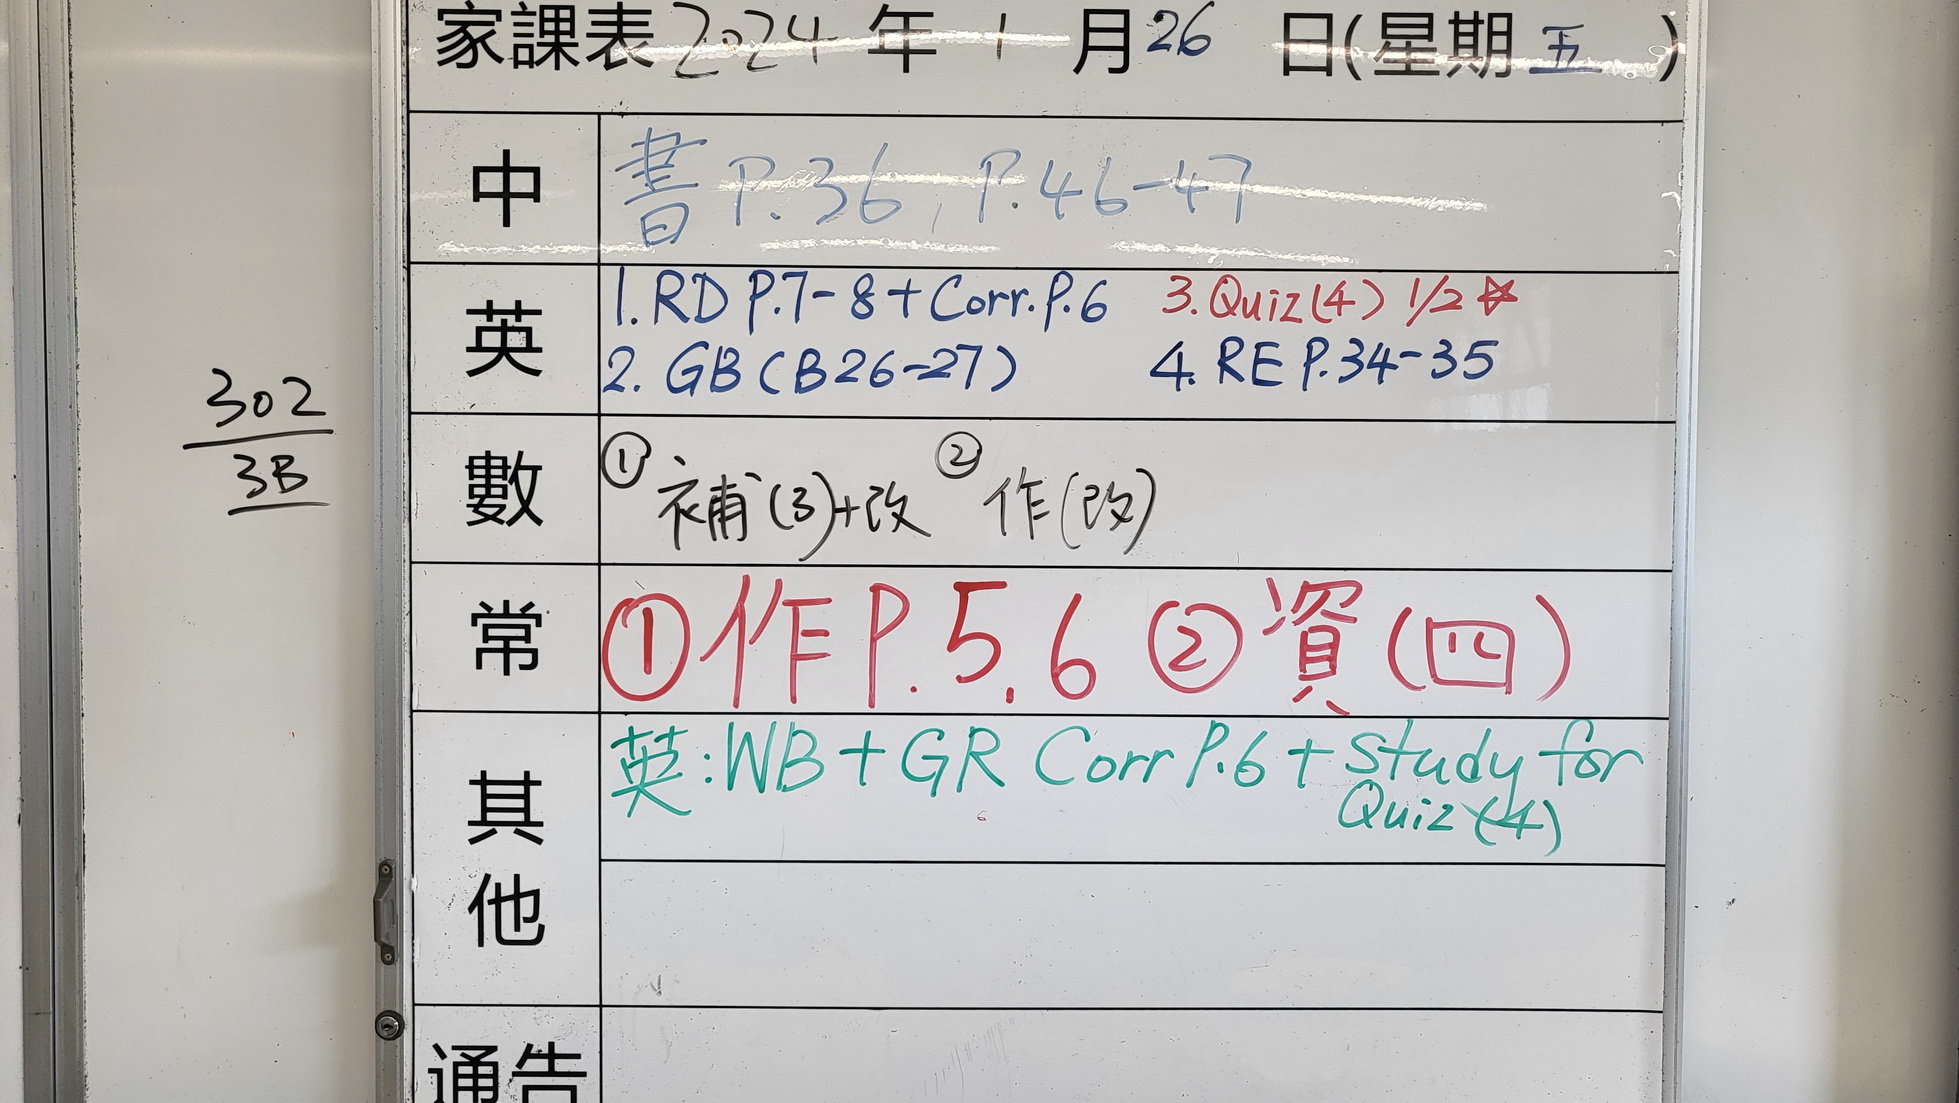 家課表2024年1月26日(星期五)
中
書 P.36, P.46-47
英
1. RD P.7-8 + Corr. P.6 3. Quiz(4) 1/2 ☆
2. GB (B26-27) 4. RE P.34-35
302
3B
數
① 補(3)+改 ② 作(改)
常
①作P.5,6 ②資(四)
其他
英:WB + GR Corr P.6 + Study for
Quiz (4)
通告